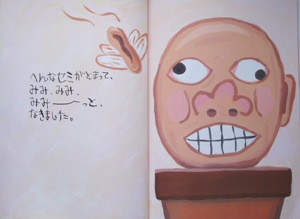 へんなセミがとまって、
みみ、みみ、
みみ――っと、
なきました。